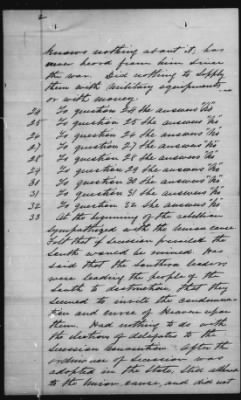 2
knows nothing about it, has
never heard from him since
the war. Did nothing to supply
them with Military equipments
or with money.
24 To question 24 She answers "No"
25 To question 25 She answers "No"
26 To question 26 She answers "No"
27 To question 27 She answers "No"
28 To question 28 She answers "No"
29 To question 29 She answers "No"
30 To question 30 She answers "No"
31 To question 31 She answers "No"
32 To question 32 She answers "No"
33 At the beginning of the rebellion
Sympathized with the Union cause
Felt that if Secession prevailed the
South would be ruined. He
said that the Southern leaders
were leading the people of the
South to destruction, that they
seemed to invite the condemna-
tion and curse of Heaven upon
them. Had nothing to do with
the election of delegates to the
Secession Convention. After the
ordinance of Secession was
adopted in the State, Still adhered
to the Union cause, and did not